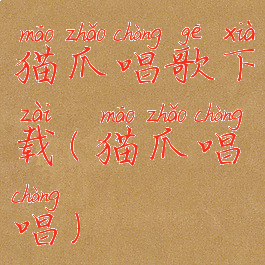 māo zhǎo chàng gē xià
猫爪唱歌下
zài māo zhǎo chàng
载(猫爪唱
chàng
唱)